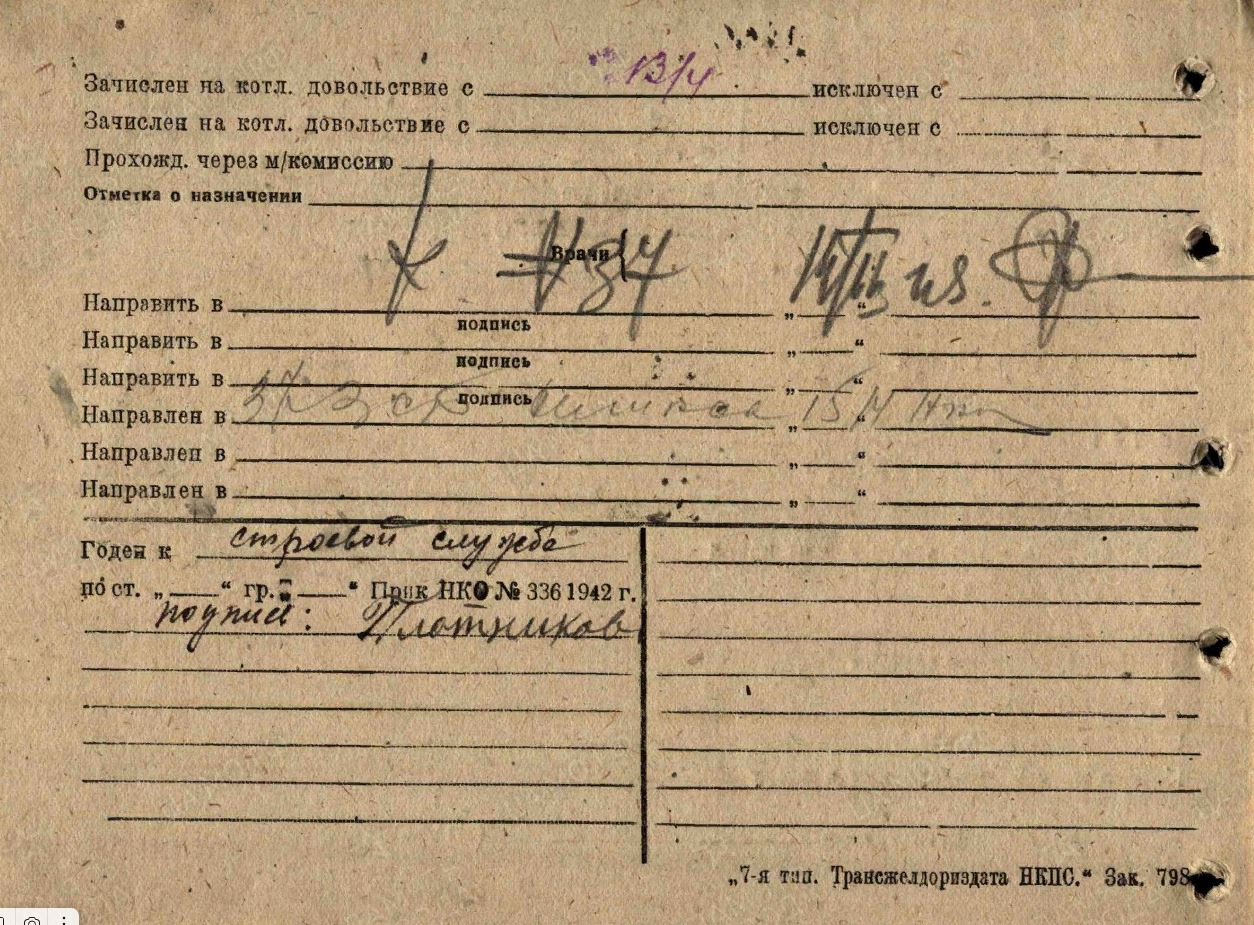 Зачислен на котл. довольствие с 13/4 исключен с
Зачислен на котл. довольствие с исключен с
Прохожд. через м/комиссию
Отметка о назначении
Врачи {
Направить в „ “
подпись
Направить в „ “
подпись
Направить в „ “
подпись
Направлен в „ “
Направлен в „ “
Направлен в „ “
Годен к строевой службе
по ст. „ “ гр. „ “ Прик НКО № 336 1942 г.
подпись: Плотников
„7-я тип. Трансжелдориздата НКПС.“ Зак. 798